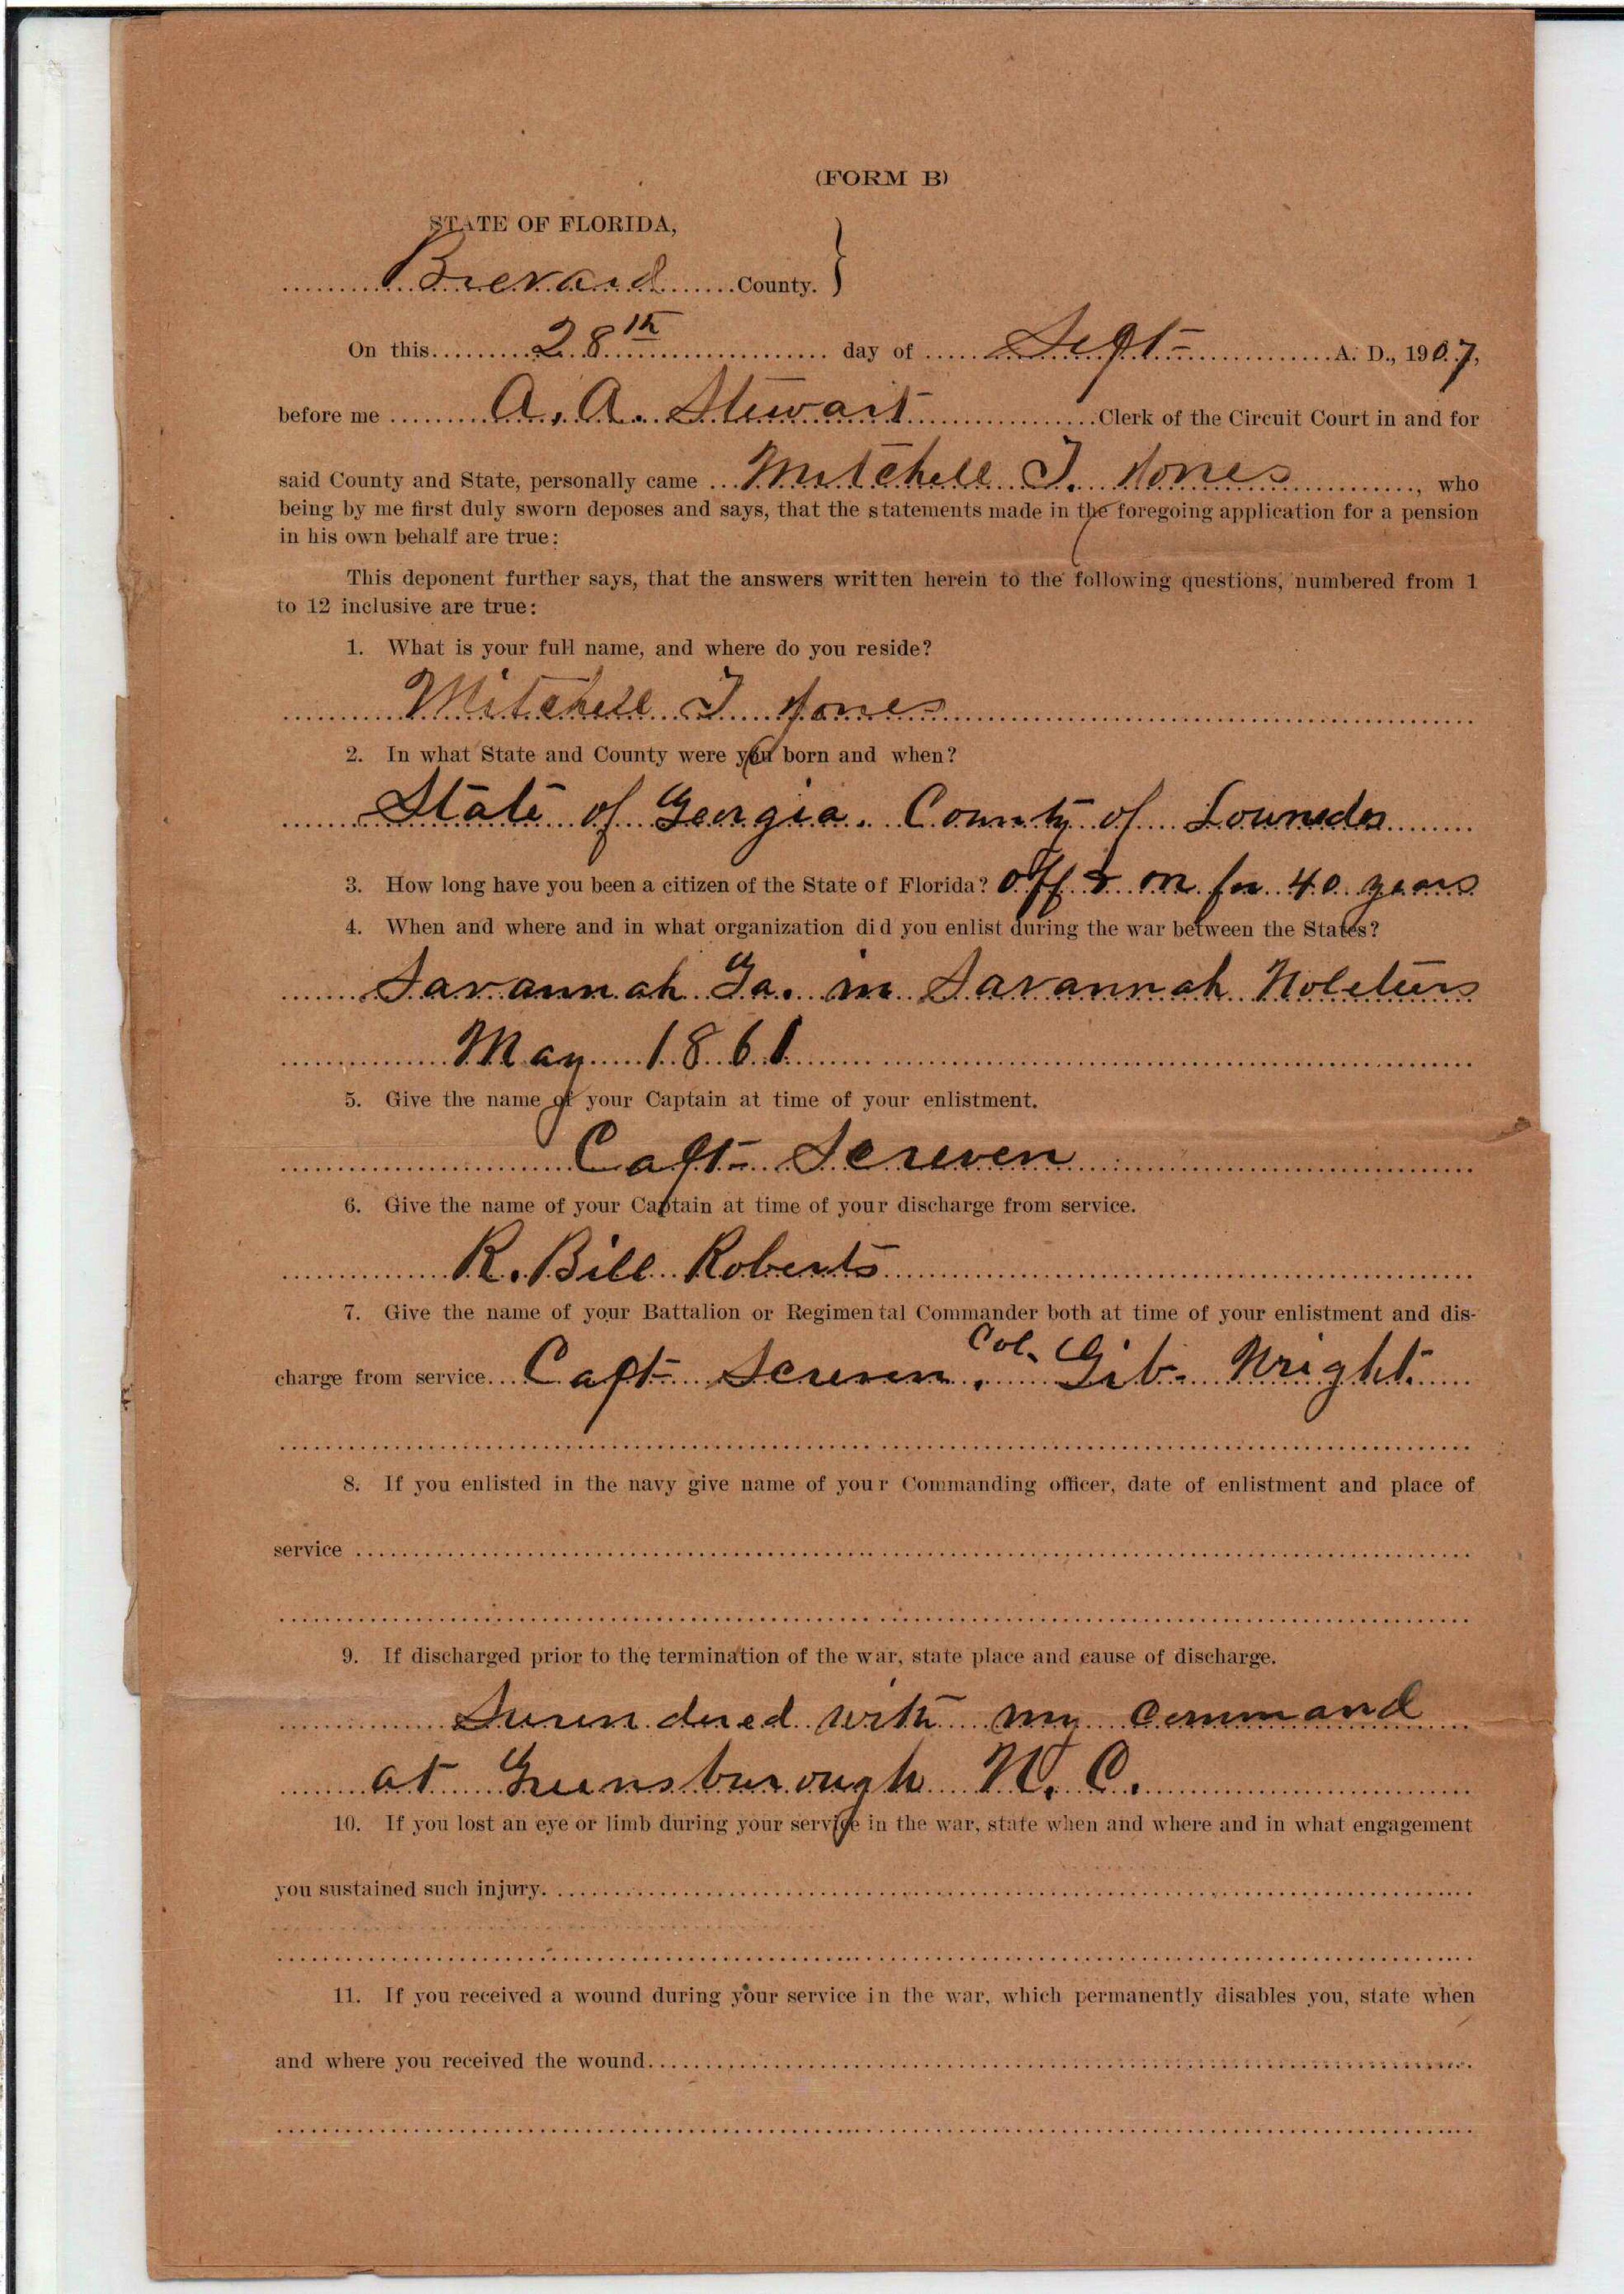 (FORM B)
STATE OF FLORIDA,
Brevard County.
On this 28th day of Sept A. D., 1907,
before me A. A. Stewart Clerk of the Circuit Court in and for
said County and State, personally came Mitchell J. Jones, who
being by me first duly sworn deposes and says, that the statements made in the foregoing application for a pension
in his own behalf are true:
This deponent further says, that the answers written herein to the following questions, numbered from 1
to 12 inclusive are true:
1. What is your full name, and where do you reside?
Mitchell J Jones
2. In what State and County were you born and when?
State of Georgia. County of Lowndes
3. How long have you been a citizen of the State of Florida? off & on for 40 years
4. When and where and in what organization did you enlist during the war between the States?
Savannah Ga. in Savannah
May 1861
5. Give the name of your Captain at time of your enlistment.
Capt Screven
6. Give the name of your Captain at time of your discharge from service.
R. Bill Roberts
7. Give the name of your Battalion or Regimental Commander both at time of your enlistment and dis-
charge from service. Capt Screven. Col. Gib. Wright.
8. If you enlisted in the navy give name of your Commanding officer, date of enlistment and place of
service
9. If discharged prior to the termination of the war, state place and cause of discharge.
Surrendered with my command
at Greensburough N. C.
10. If you lost an eye or limb during your service in the war, state when and where and in what engagement
you sustained such injury.
11. If you received a wound during your service in the war, which permanently disables you, state when
and where you received the wound.